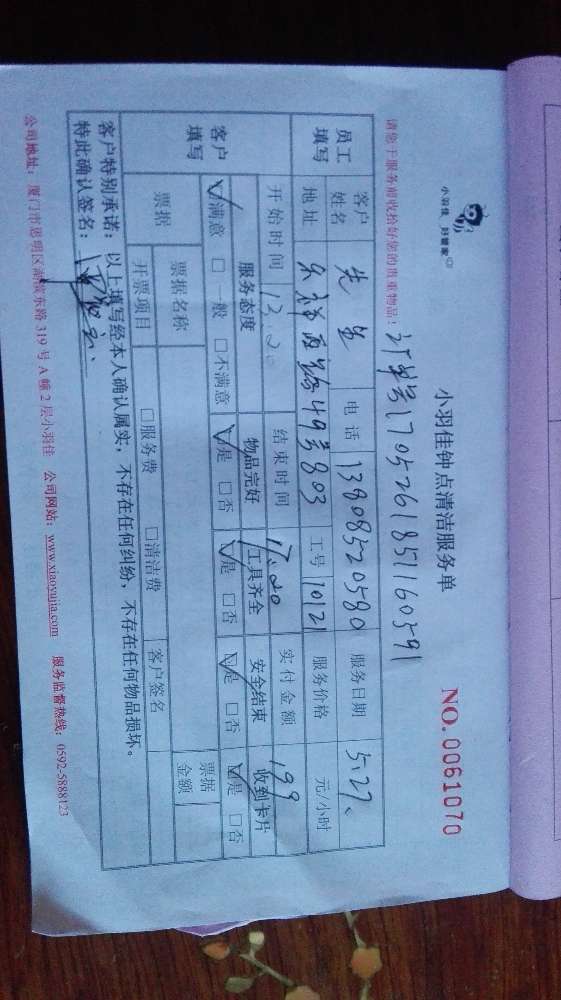 小羽佳 好管家
小羽佳钟点清洁服务单
NO. 0061070
请您于服务前收拾好您的贵重物品! 订单号1705261851160591
员工填写 客户姓名 先生 电话 13808520580 服务日期 5.27.
地址 49号803 工号 10121 服务价格 元/小时
客户填写 开始时间 13.20 结束时间 17.20 实付金额 199
服务态度 物品完好 工具齐全 安全结束 收到卡片
☑满意 □一般 □不满意 ☑是 □否 ☑是 □否 ☑是 □否 ☑是 □否
票据 票据名称 票据金额
开票项目 □服务费 □清洁费 客户签名
客户特别承诺：以上填写经本人确认属实，不存在任何纠纷，不存在任何物品损坏。
特此确认签名：
公司地址：厦门市思明区湖滨东路 319 号 A 幢 2 层小羽佳 公司网站：www.xiaoyujia.com 服务监督热线：0592-5888123